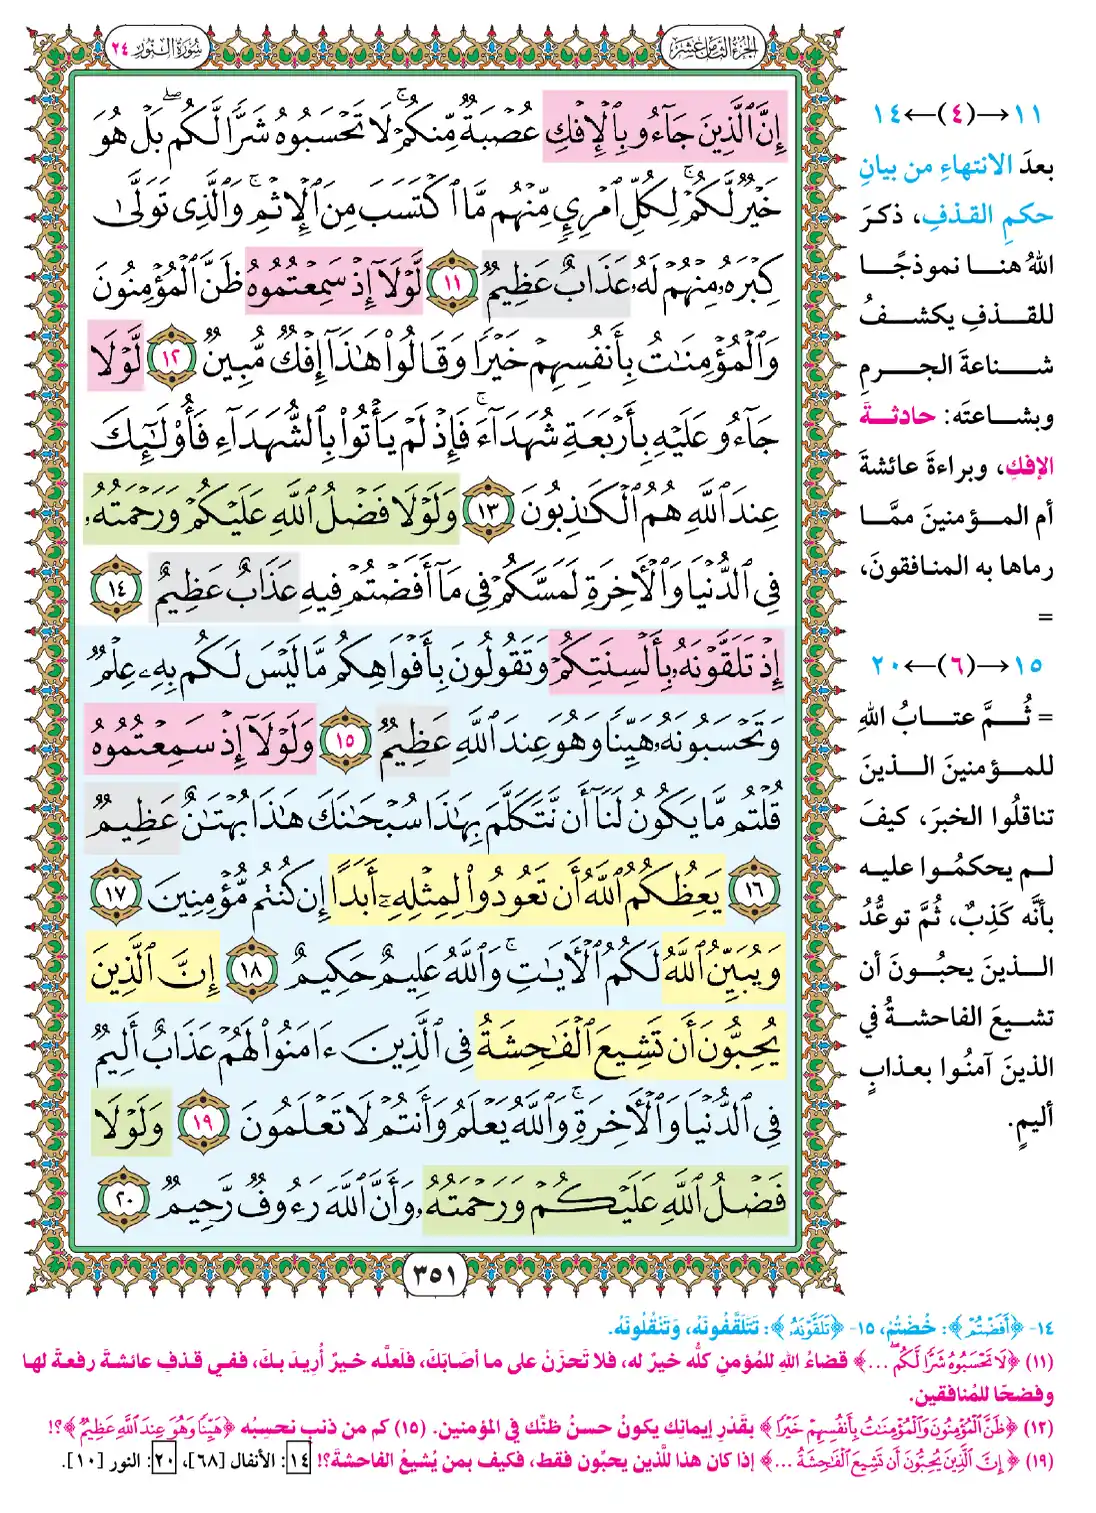 الجزء الثامن عشر
سورة النور ٢٤
إِنَّ ٱلَّذِينَ جَآءُو بِٱلْإِفْكِ عُصْبَةٌ مِّنكُمْ ۚ لَا تَحْسَبُوهُ شَرًّا لَّكُم ۖ بَلْ هُوَ
خَيْرٌ لَّكُمْ ۚ لِكُلِّ ٱمْرِئٍ مِّنْهُم مَّا ٱكْتَسَبَ مِنَ ٱلْإِثْمِ ۚ وَٱلَّذِى تَوَلَّىٰ
كِبْرَهُۥ مِنْهُمْ لَهُۥ عَذَابٌ عَظِيمٌ ١١ لَّوْلَآ إِذْ سَمِعْتُمُوهُ ظَنَّ ٱلْمُؤْمِنُونَ
وَٱلْمُؤْمِنَٰتُ بِأَنفُسِهِمْ خَيْرًا وَقَالُوا۟ هَٰذَآ إِفْكٌ مُّبِينٌ ١٢ لَّوْلَا
جَآءُو عَلَيْهِ بِأَرْبَعَةِ شُهَدَآءَ ۚ فَإِذْ لَمْ يَأْتُوا۟ بِٱلشُّهَدَآءِ فَأُو۟لَٰٓئِكَ
عِندَ ٱللَّهِ هُمُ ٱلْكَٰذِبُونَ ١٣ وَلَوْلَا فَضْلُ ٱللَّهِ عَلَيْكُمْ وَرَحْمَتُهُۥ
فِى ٱلدُّنْيَا وَٱلْءَاخِرَةِ لَمَسَّكُمْ فِى مَآ أَفَضْتُمْ فِيهِ عَذَابٌ عَظِيمٌ ١٤
إِذْ تَلَقَّوْنَهُۥ بِأَلْسِنَتِكُمْ وَتَقُولُونَ بِأَفْوَاهِكُم مَّا لَيْسَ لَكُم بِهِۦ عِلْمٌ
وَتَحْسَبُونَهُۥ هَيِّنًا وَهُوَ عِندَ ٱللَّهِ عَظِيمٌ ١٥ وَلَوْلَآ إِذْ سَمِعْتُمُوهُ
قُلْتُم مَّا يَكُونُ لَنَآ أَن نَّتَكَلَّمَ بِهَٰذَا سُبْحَٰنَكَ هَٰذَا بُهْتَٰنٌ عَظِيمٌ
١٦ يَعِظُكُمُ ٱللَّهُ أَن تَعُودُوا۟ لِمِثْلِهِۦٓ أَبَدًا إِن كُنتُم مُّؤْمِنِينَ ١٧
وَيُبَيِّنُ ٱللَّهُ لَكُمُ ٱلْءَايَٰتِ ۚ وَٱللَّهُ عَلِيمٌ حَكِيمٌ ١٨ إِنَّ ٱلَّذِينَ
يُحِبُّونَ أَن تَشِيعَ ٱلْفَٰحِشَةُ فِى ٱلَّذِينَ ءَامَنُوا۟ لَهُمْ عَذَابٌ أَلِيمٌ
فِى ٱلدُّنْيَا وَٱلْءَاخِرَةِ ۚ وَٱللَّهُ يَعْلَمُ وَأَنتُمْ لَا تَعْلَمُونَ ١٩ وَلَوْلَا
فَضْلُ ٱللَّهِ عَلَيْكُمْ وَرَحْمَتُهُۥ وَأَنَّ ٱللَّهَ رَءُوفٌ رَّحِيمٌ ٢٠
٣٥١
١١→(٤)←١٤
بعدَ الانتهاءِ من بيانِ
حكمِ القذفِ، ذكرَ
اللهُ هنا نموذجًا
للقذفِ يكشفُ
شناعةَ الجرمِ
وبشاعتَه: حادثةَ
الإفكِ، وبراءةَ عائشةَ
أم المؤمنينَ ممَّا
رماها به المنافقونَ،
=
١٥→(٦)←٢٠
= ثُمَّ عتابُ اللهِ
للمؤمنينَ الذينَ
تناقلُوا الخبرَ، كيفَ
لم يحكمُوا عليه
بأنَّه كَذِبٌ، ثُمَّ توعُّدُ
الذينَ يحبُّونَ أن
تشيعَ الفاحشةُ في
الذينَ آمنُوا بعذابٍ
أليمٍ.
١٤- ﴿أَفَضْتُمْ﴾: خُضْتُمْ، ١٥- ﴿تَلَقَّوْنَهُۥ﴾: تَتَلَقَّفُونَهُ، وَتَنْقُلُونَهُ.
(١١) ﴿لَا تَحْسَبُوهُ شَرًّا لَّكُم ۖ ...﴾ قضاءُ اللهِ للمُؤمنِ كلُّه خيرٌ له، فلا تَحزَنْ على ما أصَابَكَ، فلَعلَّه خيرٌ أُرِيدَ بكَ، ففي قذفِ عائشةَ رفعةٌ لها
وفضحًا للمُنافقين.
(١٢) ﴿ظَنَّ ٱلْمُؤْمِنُونَ وَٱلْمُؤْمِنَٰتُ بِأَنفُسِهِمْ خَيْرًا﴾ بقَدْرِ إيمانِك يكونُ حسنُ ظنِّك في المؤمنين. (١٥) كم من ذنبٍ نحسِبُه ﴿هَيِّنًا وَهُوَ عِندَ ٱللَّهِ عَظِيمٌ﴾؟!
(١٩) ﴿إِنَّ ٱلَّذِينَ يُحِبُّونَ أَن تَشِيعَ ٱلْفَٰحِشَةُ ...﴾ إذا كان هذا للَّذين يحبُّون فقط، فكيف بمن يُشيعُ الفاحشةَ؟! ١٤: الأنفال [٦٨]، ٢٠: النور [١٠].